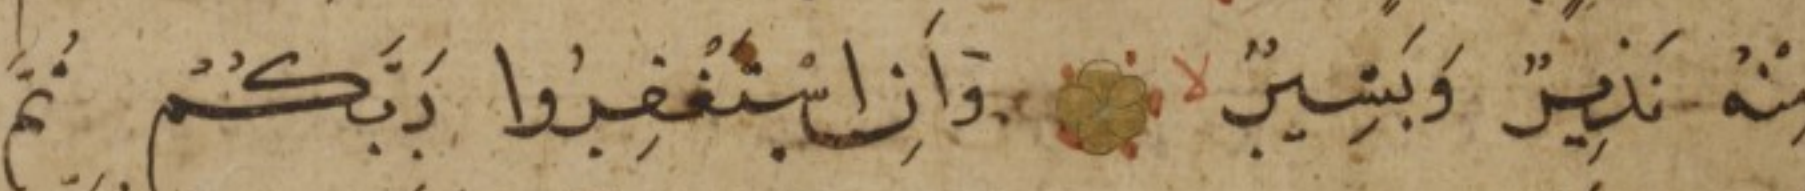 مِنْهُ نَذِيرٌ وَبَشِيرٌ لا وَاَنِ اسْتَغْفِرُوا رَبَّكُمْ ثُمَّ